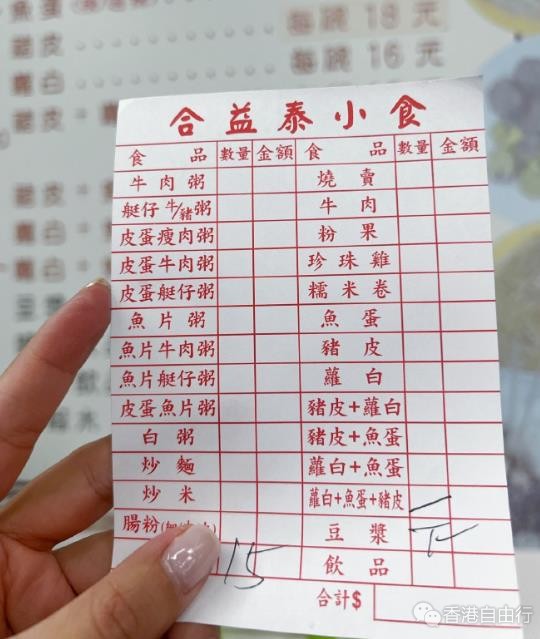 魚蛋
每碗 18 元
每碗 16 元
蘿白
合益泰小食
食品 數量 金額 食品 數量 金額
牛肉粥 燒賣
艇仔牛/豬粥 牛肉
皮蛋瘦肉粥 粉果
皮蛋牛肉粥 珍珠雞
皮蛋艇仔粥 糯米卷
魚片粥 魚蛋
魚片牛肉粥 豬皮
魚片艇仔粥 蘿白
皮蛋魚片粥 豬皮+蘿白
白粥 豬皮+魚蛋
炒麵 蘿白+魚蛋
炒米 蘿白+魚蛋+豬皮 一
腸粉 豆漿
15 飲品
合計$
香港自由行